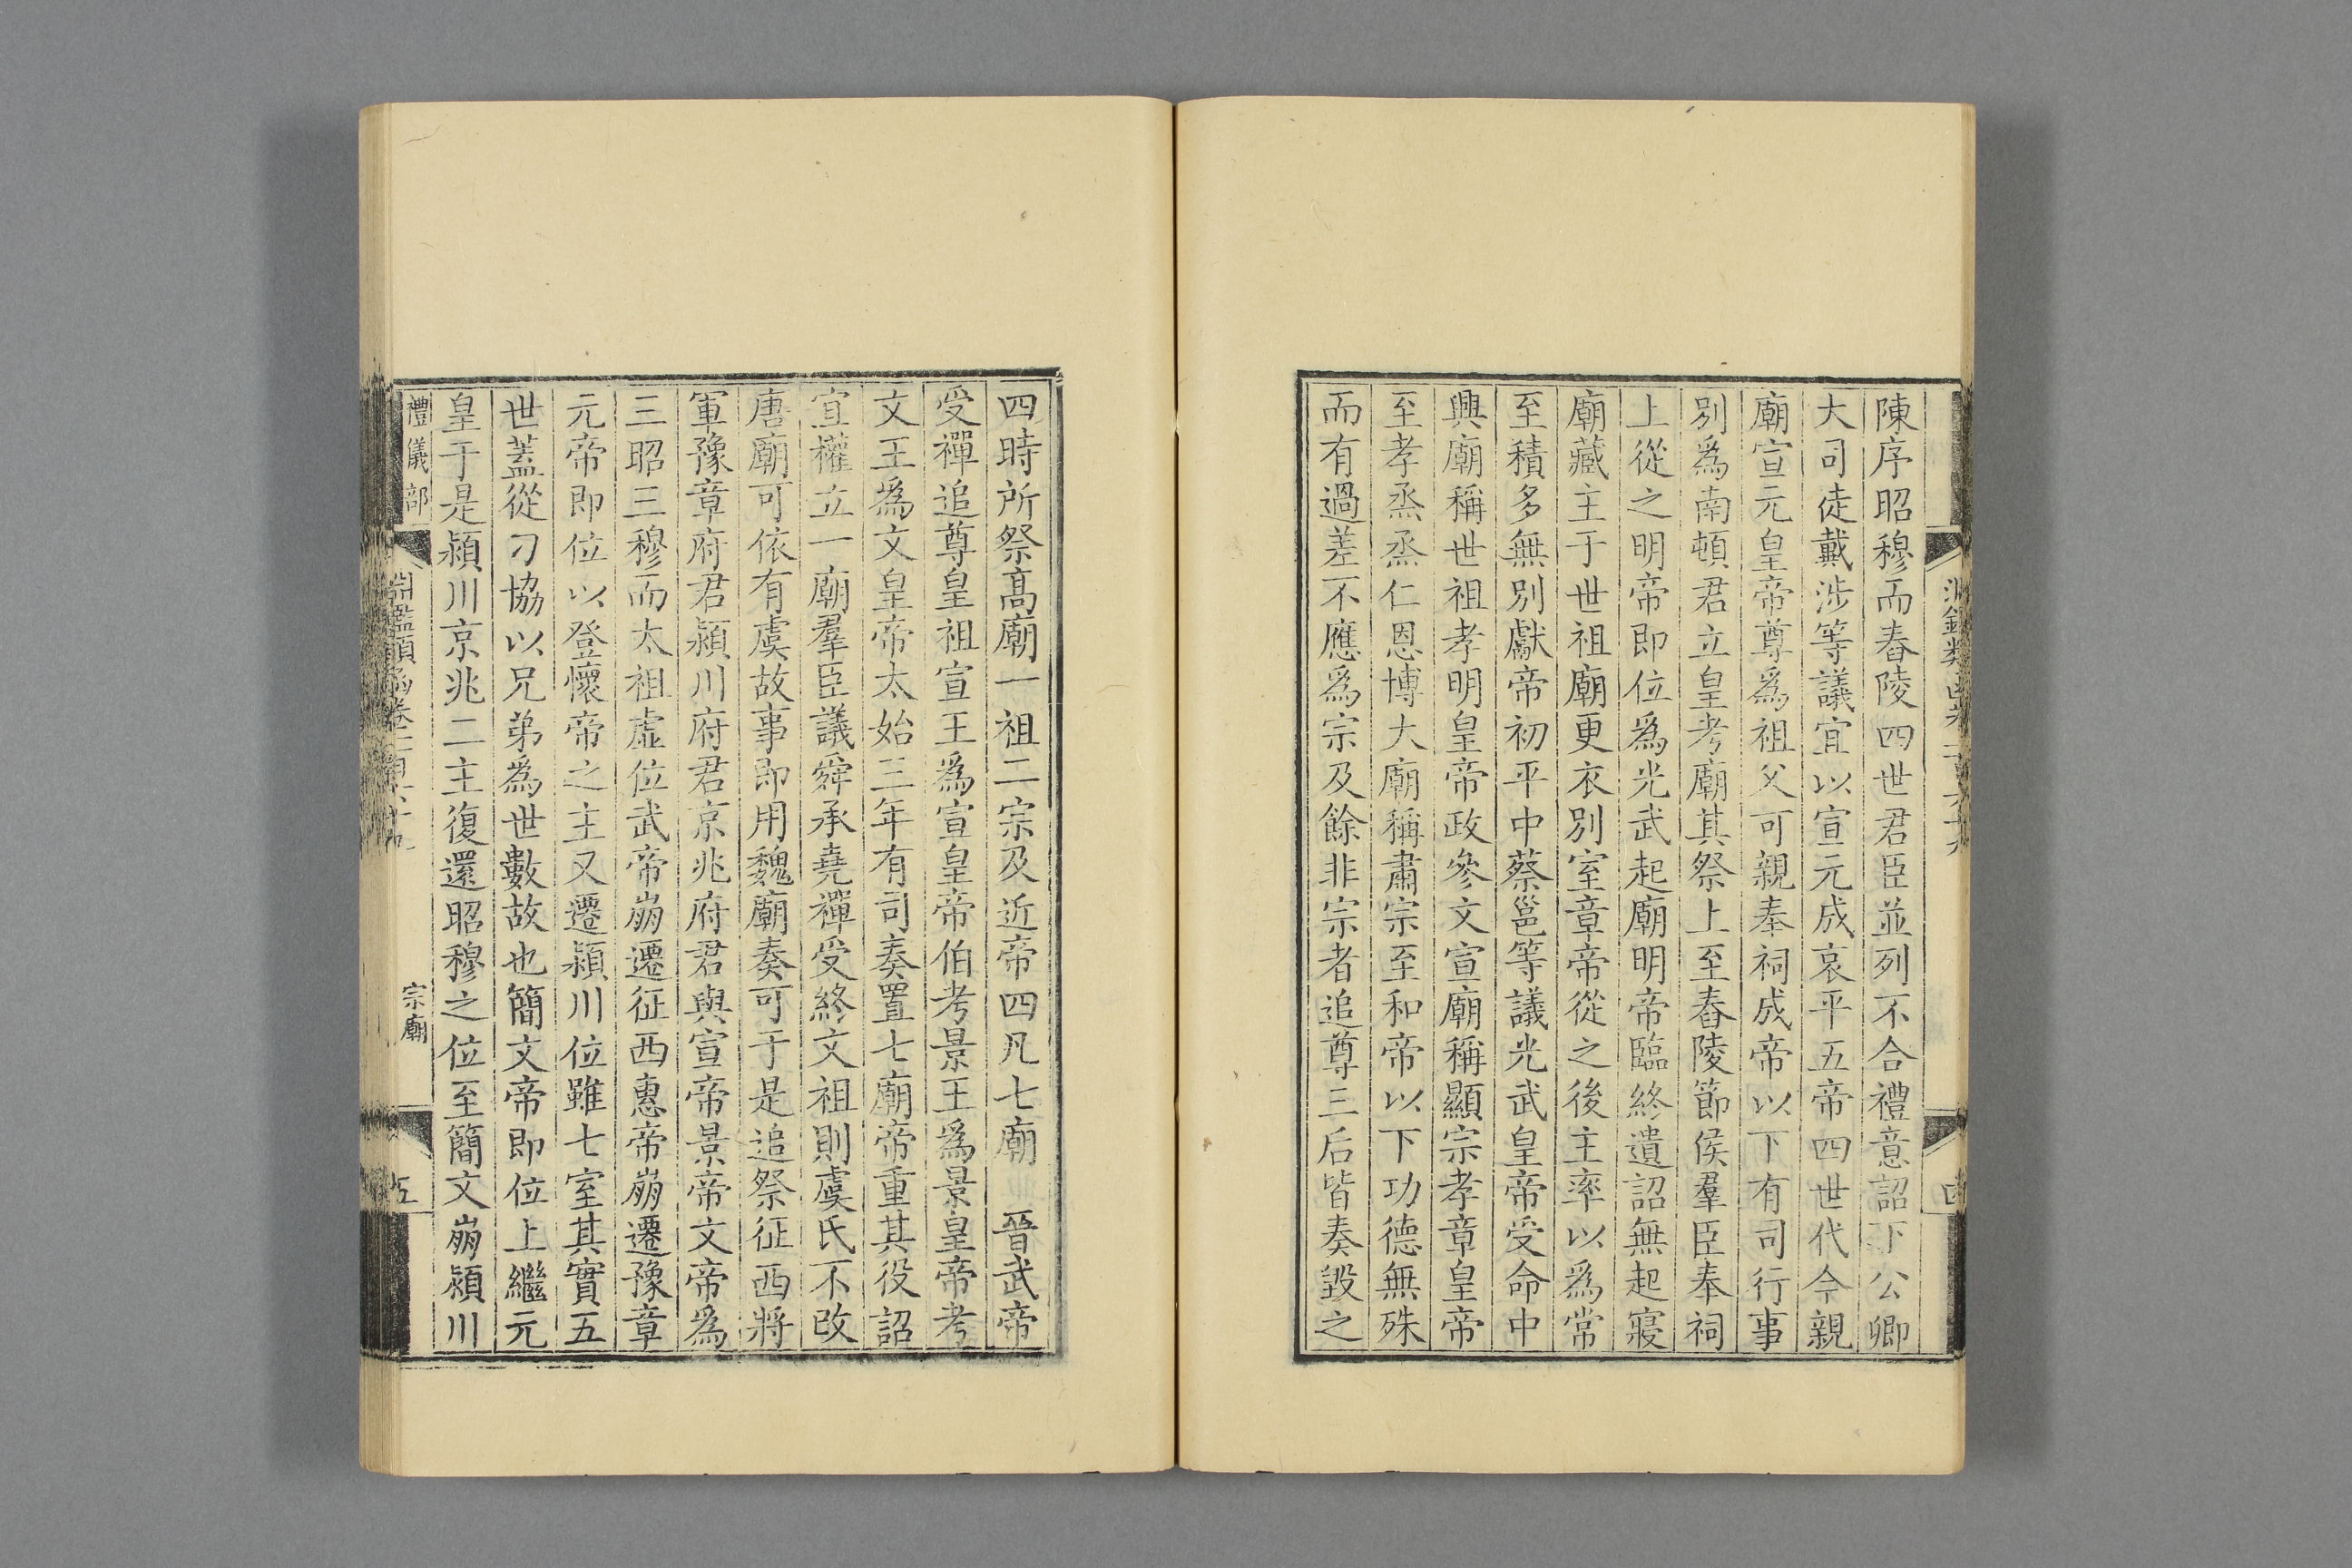 陳序昭穆而舂陵四世君臣並列不合禮意詔下公卿
大司徒戴涉等議宜以宣元成哀平五帝四世代今親
廟宣元皇帝尊爲祖父可親奉祠成帝以下有司行事
別爲南頓君立皇考廟其祭上至舂陵節侯羣臣奉祠
上從之明帝即位爲光武起廟明帝臨終遺詔無起寢
廟藏主于世祖廟更衣別室章帝從之後主率以爲常
至積多無別獻帝初平中蔡邕等議光武皇帝受命中
興廟稱世祖孝明皇帝政參文宣廟稱顯宗孝章皇帝
至孝烝烝仁恩博大廟稱肅宗至和帝以下功德無殊
而有過差不應爲宗及餘非宗者追尊三后皆奏毀之
四時所祭髙廟一祖二宗及近帝四凡七廟　晉武帝
受禪追尊皇祖宣王爲宣皇帝伯考景王爲景皇帝考
文王爲文皇帝太始三年有司奏置七廟帝重其役詔
宜權立一廟羣臣議舜承堯禪受終文祖則虞氏不改
唐廟可依有虞故事即用魏廟奏可于是追祭征西將
軍豫章府君潁川府君京兆府君與宣帝景帝文帝爲
三昭三穆而太祖虛位武帝崩遷征西惠帝崩遷豫章
元帝即位以登懷帝之主又遷潁川位雖七室其實五
世蓋從刁協以兄弟爲世數故也簡文帝即位上繼元
皇于是潁川京兆二主復還昭穆之位至簡文崩潁川
禮儀部
淵鑑類函卷一百六十九
宗廟
五